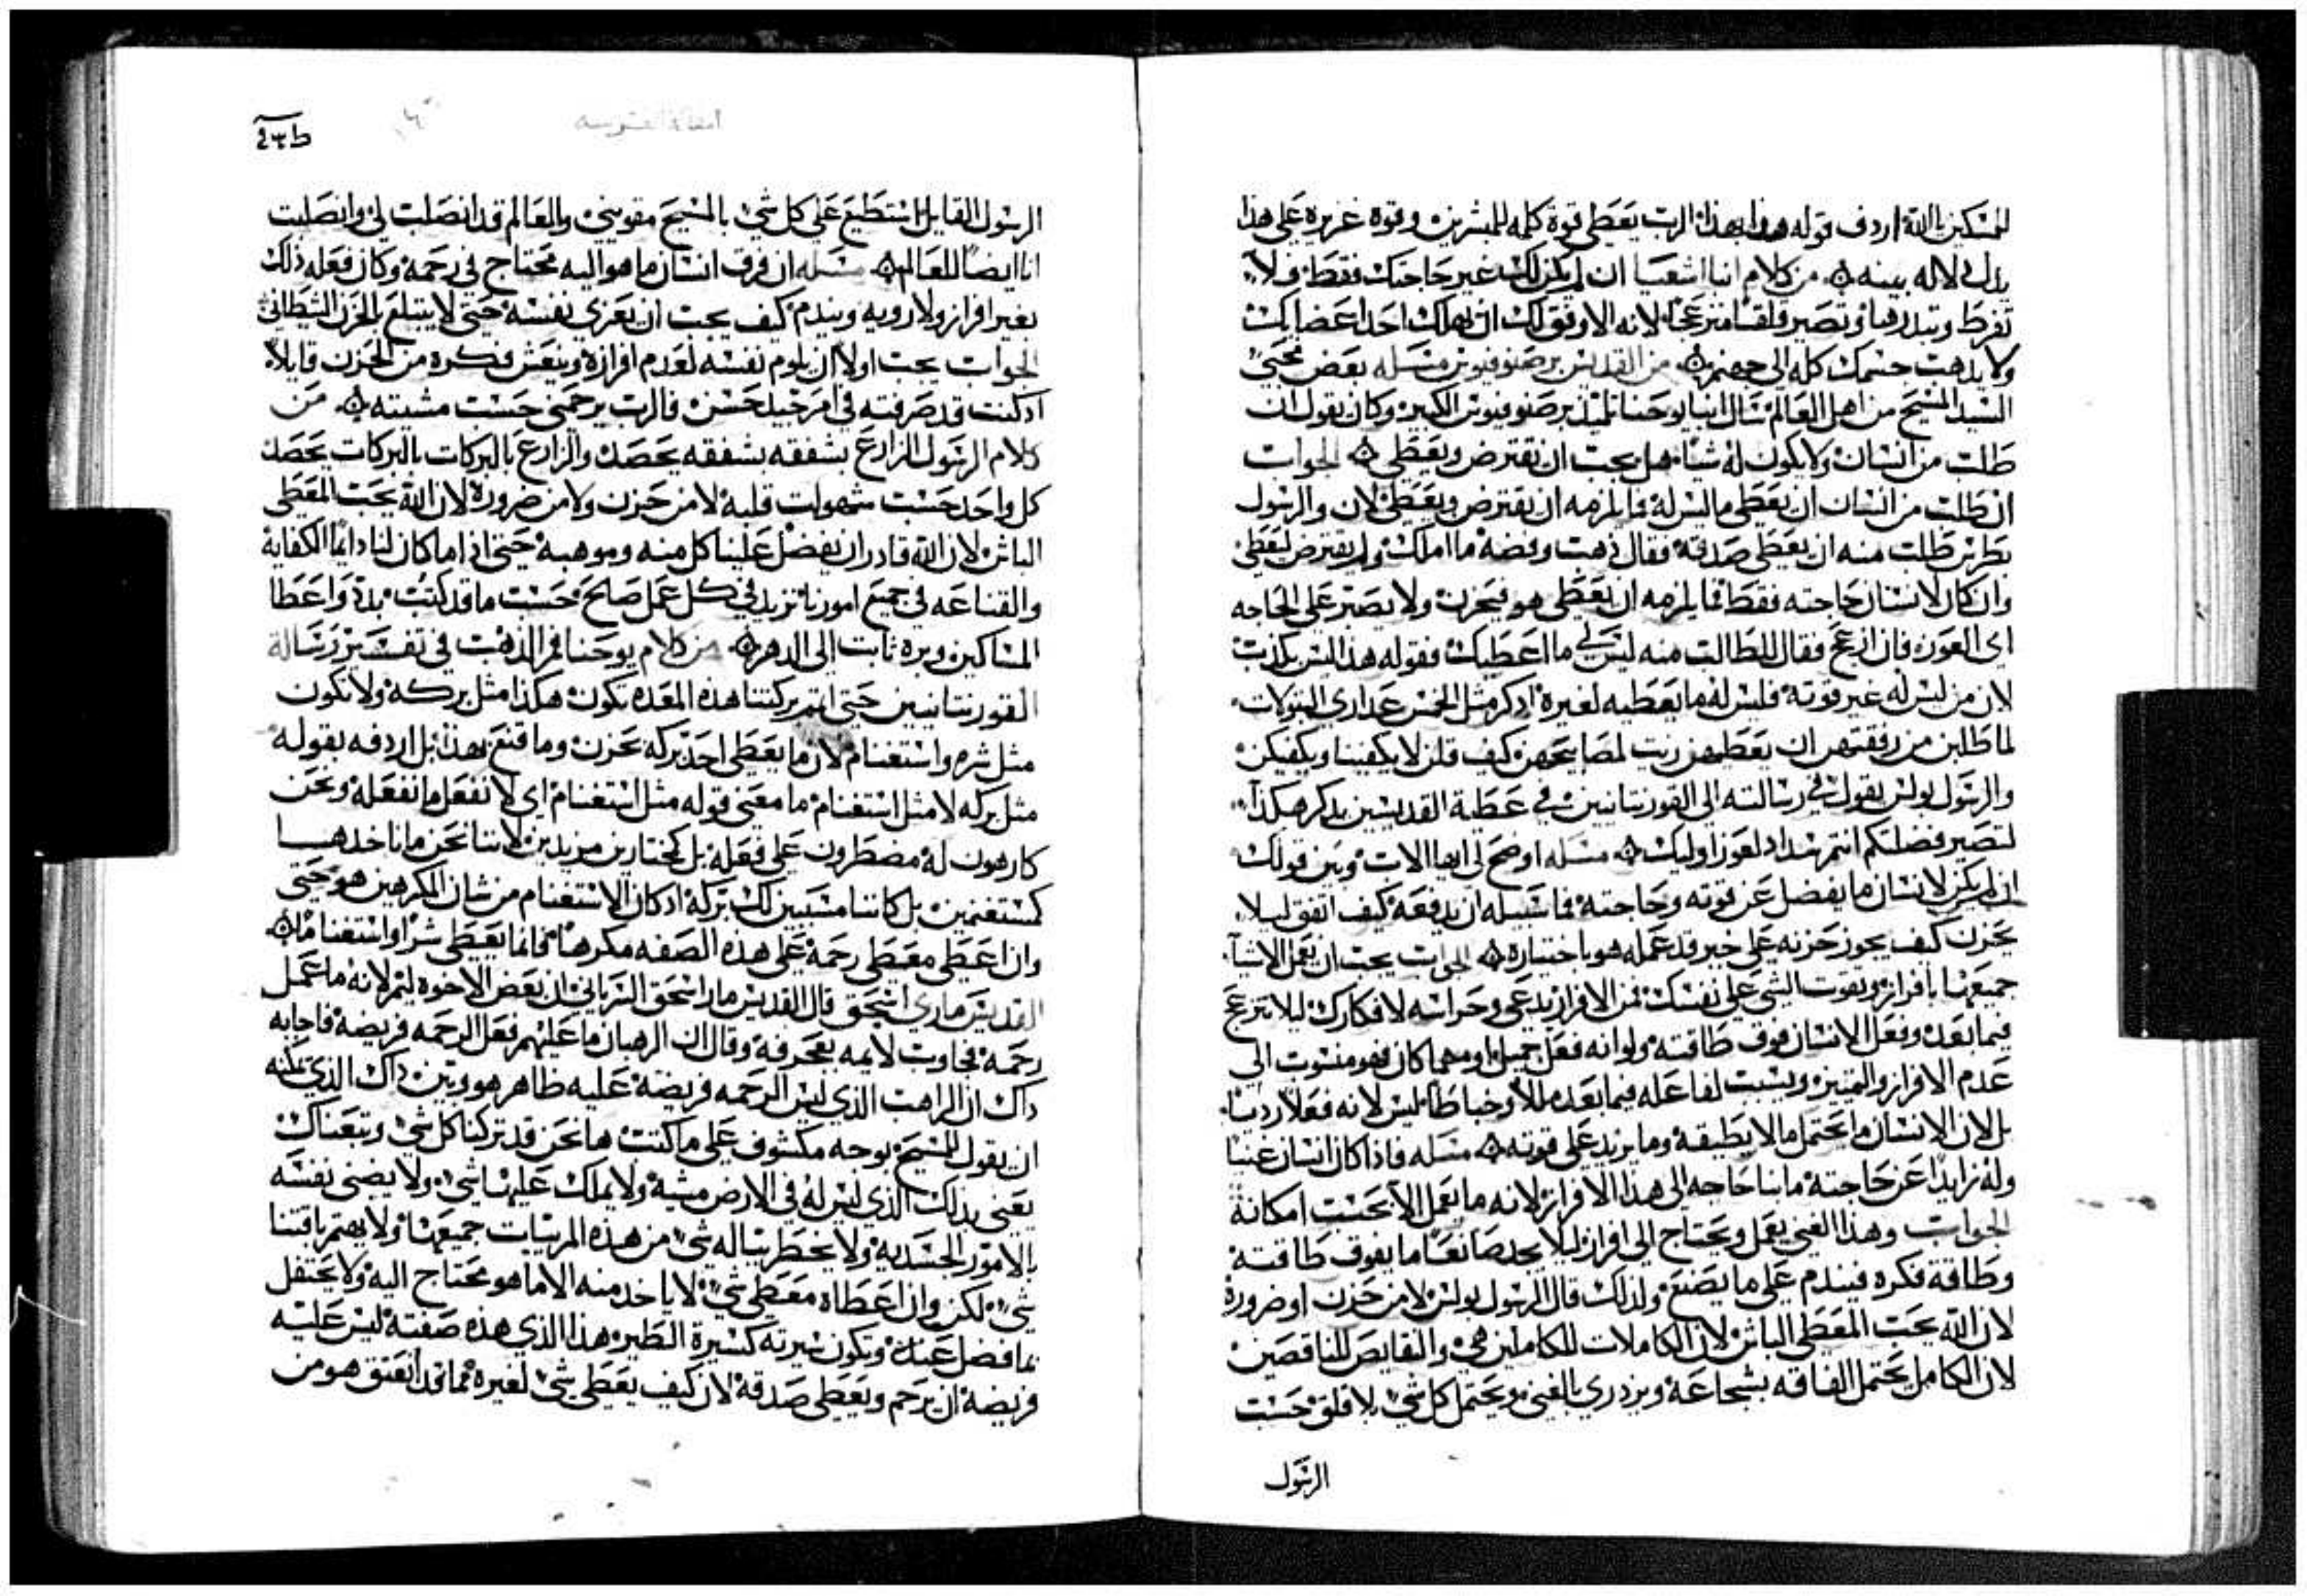 المسكين بالله اردف قوله هذا بهذا الرب يعطي قوة كلمه للمبشرين وقوة غزيره علي هذا
يدل دلاله بينه من كلام انبا اشعيا ان لم يكن لك غير حاجتك فقط فلا
تفرط وتبددها وتصير قلقا منزعجا لانه الاوفق لك ان يهلك احد اعضايك
ولا يذهب جسمك كله الي جهنم من القديس برصنوفيوس مسله بعض محبي
السيد المسيح من اهل العالم سال انبا يوحنا تلميذ برصنوفيوس الكبير وكان يقول ان
طلب من انسان ولا يكون له شيا هل يجب ان يقترض ويعطي الجواب
ان طلب من انسان ان يعطي ما ليس له فما يلزمه ان يقترض ويعطي لان والرسول
بطرس طلب منه ان يعطي صدقة فقال ذهب وفضة ما املك ولم يقترض ليعطي
وان كان لانسان حاجته فقط فما يلزمه ان يعطي هو فيحزن ولا يصبر علي الحاجه
اي العوز فان ازعج فقال للطالب منه ليس لي ما اعطيك فقوله هذا ليس بكذب
لان من ليس له غير قوته فليس له ما يعطيه لغيره اذكر مثل الخمس عداري البتولات
لما طلبن من رفقتهم ان يعطيهن زيت لمصابيحهن كيف قلن لا يكفينا ويكفيكن
والرسول بولس يقول في رسالته الي القورنتانيين في عطية القديسين يذكر هكذا
لتصير فضلتكم انتم سداد لعوز اوليك مسله اوضح لي ايها الاب وبين قولك
ان لم يكن لانسان ما يفضل عن قوته وحاجته فما سبيله ان يدفعه كيف اتفق ليلا
يحزن كيف يجوز حزنه علي خير قد عمله هو باختياره الجواب يجب ان نعمل الاشيا
جميعها بافراز وتفوت الشي علي نفسك فمن الافراز يدعي وحراسه لافكارك ليلا تنزعج
فيما بعد وفعل الانسان فوق طاقته ولو انه فعل جميل او مهما كان فهو منسوب الي
عدم الافراز والتميز ويسبب لفاعله فيما بعد مللا وخباطا ليس لانه فعلا رديا
بل لان الانسان ما يحتمل ما لا يطيقه وما يزيد علي قوته مسله فاذا كان انسان غنيا
وله زايدا عن حاجته ما بنا حاجه الي هذا الافراز لانه ما يعمل الا بحسب امكانه
الجواب وهذا الغني يعمل ويحتاج الي افراز ليلا يجد صانعا ما يفوق طاقته
وطاقة فكره فيندم علي ما يصنع ولذلك قال الرسول بولس لا من حزن او ضرورة
لان الله يحب المعطي الباش لان الكاملات للكاملين هي والنقايص للناقصين
لان الكامل يحتمل الفاقه بشجاعه ويزدري بالغني ويحتمل كل شي بلا قلق حسب
الرسول
الرسول القايل استطيع علي كل شي بالمسيح مقويني والعالم قد انصلب لي وانصلبت
انا ايضا للعالم مسله ان فرق انسان ما هو اليه محتاج في رحمة وكان فعله ذلك
بغير افراز ولا رويه ويندم كيف يجب ان يعزي نفسه حتي لا يبتلع بالحزن الشيطاني
الجواب يجب اولا ان يلوم نفسه لعدم افرازه وينعش فكره من الحزن قايلا
اذ كنت قد صرفته في امر جيد حسن فالرب يرحمني حسب مشيته من
كلام الرسول الزارع بشفقه بشفقه يحصد والزارع بالبركات بالبركات يحصد
كل واحد حسب سهولت قلبه لا من حزن ولا من ضروره لان الله يحب المعطي
الباش لان الله قادر ان يفضل علينا كل منه وموهبه حتي اذا ما كان لنا دايما الكفاية
والقناعه في جميع امورنا نزيد في كل عمل صالح حسب ما قد كتب بدد واعطا
المساكين وبره ثابت الي الدهر من كلام يوحنا فم الذهب في تفسير رسالة
القورنتانيين حتي اتم بركتنا هذه المعده تكون هكذا مثل بركه ولا تكون
مثل شره واستغنام لان ما يعطي احد بركه بحزن وما قنع بهذا بل اردفه بقوله
مثل بركه لا مثل استغنام ما معني قوله مثل استغنام اي لا نفعل ما نفعله ونحن
كارهون له مضطرون علي فعله بل كمختارين مريدين لاننا نحن ما ناخدها
كمستغنمين بل كاننا مسببين لك بركه اذ كان الاستغنام من شان المكرهين هو حتي
وان اعطي معطي رحمة علي هذه الصفه مكرها فانما يعطي شرا واستغناما
القديس ماري اسحق قال القديس مار اسحق السرياني ان بعض الاخوه ليم لانه ما عمل
رحمة فجاوب لايمه بعجرفه وقال ان الرهبان ما عليهم فعل الرحمه فريضه فاجابه
داك ان الراهب الذي ليس الرحمه فريضه عليه ظاهر هو وبين داك الذي يمكنه
ان يقول للمسيح بوجه مكشوف علي ما كتب ها نحن قد تركنا كل شي وتبعناك
يعني بذلك الذي ليس له في الارض مشية ولا يملك عليها شي ولا يضني نفسه
بالامور الجسدية ولا يخطر بباله شي من هذه المريات جميعها ولا يهتم باقتنا
شي لكن وان اعطاه معطي شي لا ياخد منه الا ما هو محتاج اليه ولا يحتفل
بما فضل عنه وتكون سيرته كسيرة الطير هذا الذي هذه صفته ليس عليه
فريضه ان يرحم ويعطي صدقه لان كيف يعطي شي لغيره مما قد انعتق هو من